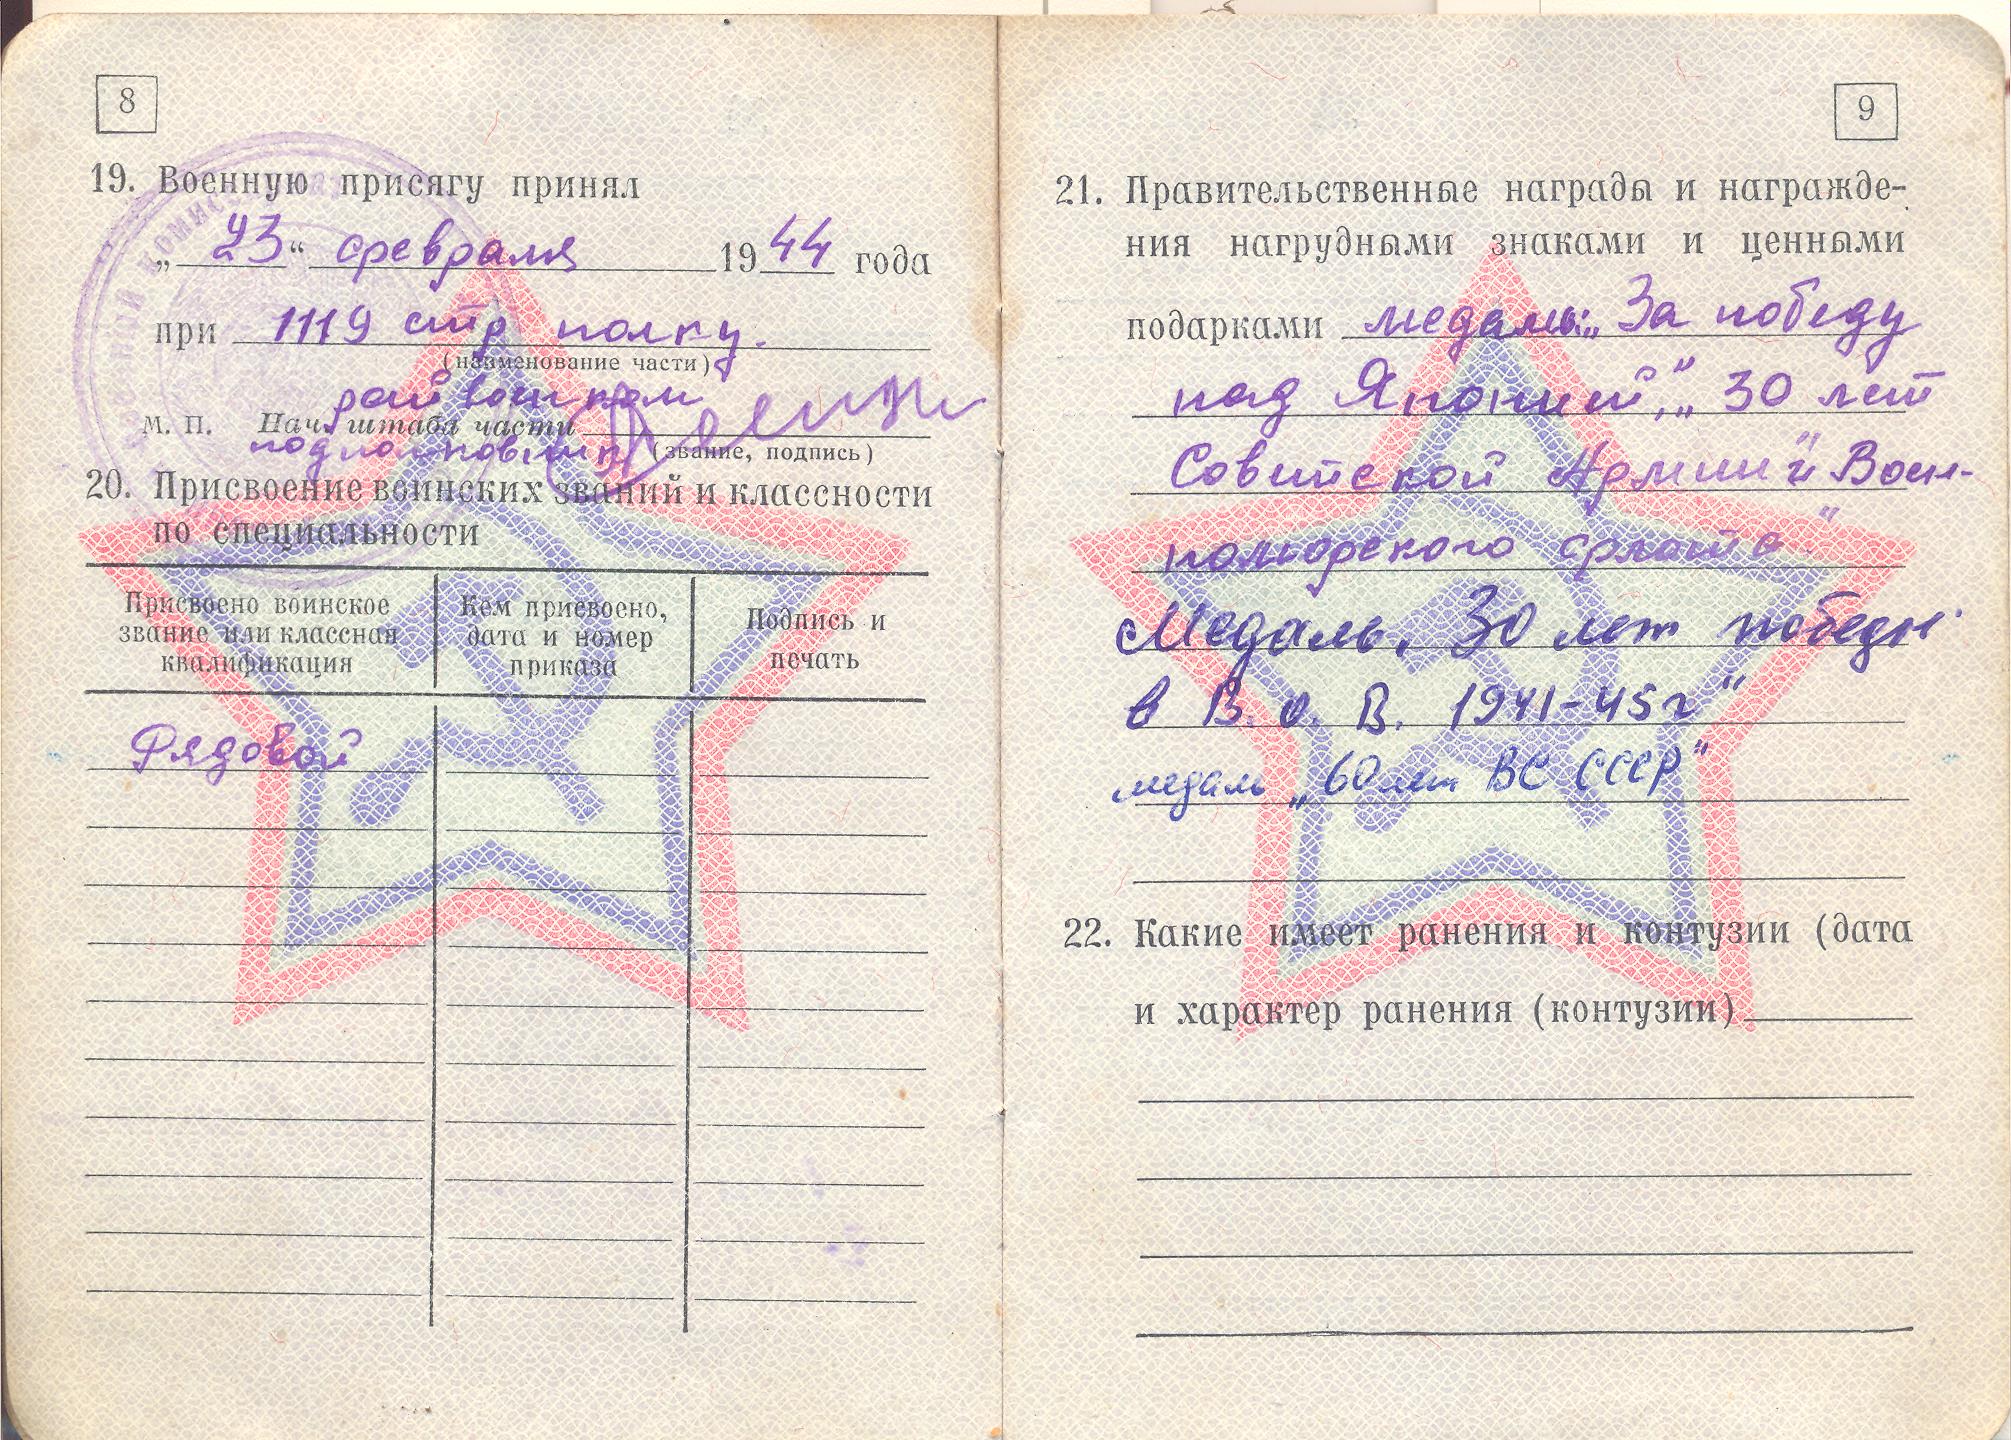 8
19. Военную присягу принял
„ 23 “ февраля 1944 года
при 1119 стр полку.
(наименование части)
райвоенком
М. П. Нач. штаба части
подполковник (звание, подпись)
20. Присвоение воинских званий и классности
по специальности
Присвоено воинское звание или классная квалификация
Кем присвоено, дата и номер приказа
Подпись и печать
Рядовой
9
21. Правительственные награды и награжде-
ния нагрудными знаками и ценными
подарками медаль: „За победу
над Японией“, „30 лет
Советской Армии и Воен-
номорского флота“
Медаль „30 лет победы
в В. О. В. 1941-45г“
медаль „60 лет ВС СССР“
22. Какие имеет ранения и контузии (дата
и характер ранения (контузии)